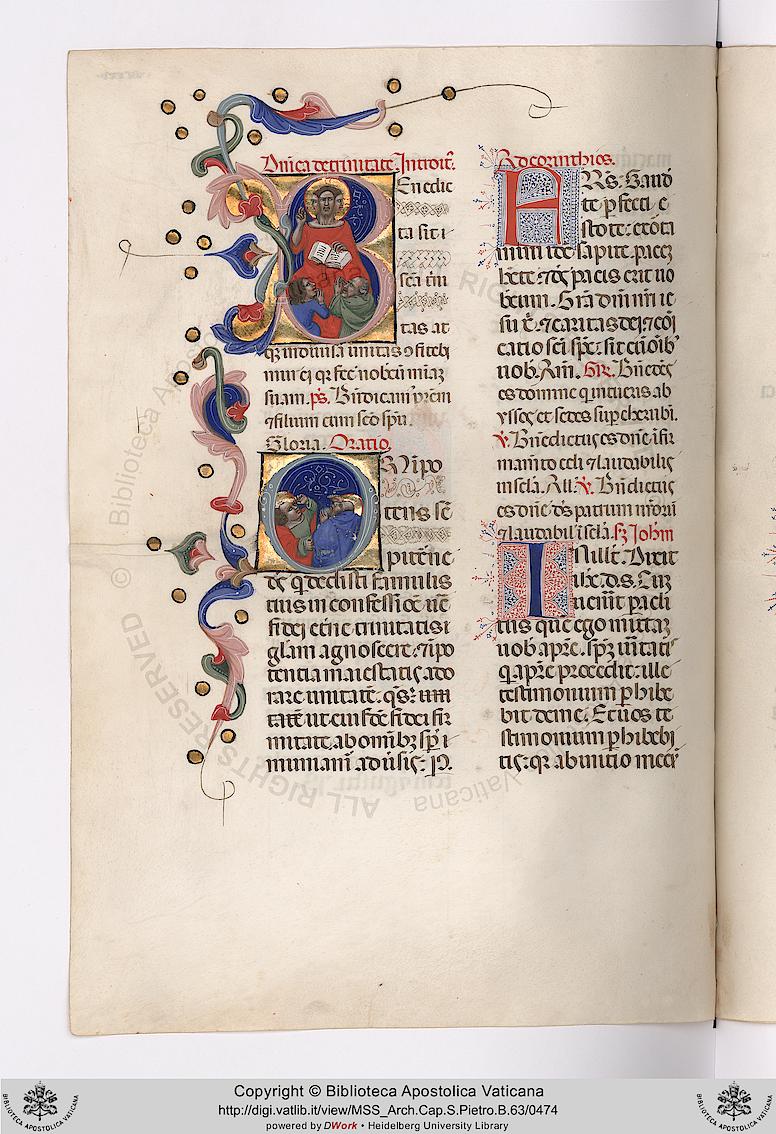 Dnica de trinitate. Introit.
Benedic
ta sit i
sca trin
tas at
q indiuisa unitas 9fitebi
mur ei qr fec nobcu miam
suam. ps. Bndicam prem
7 filium cum sco spu.
Gloria. Oratio.
Omnipo
tens se
pitne
ds q dedisti famulis
tuis in confessioe ue
fidei etne trinitatis
gliam agnoscere. 7 i po
tencia maiestatis ado
rare unitate. qs
ut eiusde fidei fir
mitate ab omibz sp i
muniam aduisis. P.
Ad corinthios.
FRS. Gaud
te pfecti e
stote. exota
mini ide sapite. pacez
hete. 7 ds pacis erit uo
bcum. Gra dni nri ie
su x. 7 caritas dei. 7 coi
catio sci sps. sit cu oibz
uob. Am. GR. Bn es
es domine qui intueris ab
yssos et sedes sup cherubi.
V. Bndictus es dne i fir
mamto celi 7 laudabilis
in scla. All. V. Bndictus
es dne ds patrum nrorum
7 laudabil i scla. Johm
In illo. t. Dixit
ihc. d. s. Cuz
uenit pacli
tus que ego mittaz
uob a pre. spm uitatis
q a pre procedit. ille
testimonium phibe
bit de me. Et uos te
stimonium phibebi
tis. qr ab initio mecu
© Biblioteca Apostolica Vaticana
ALL RIGHTS RESERVED
Copyright © Biblioteca Apostolica Vaticana
http://digi.vatlib.it/view/MSS_Arch.Cap.S.Pietro.B.63/0474
powered by DWork • Heidelberg University Library
BIBLIOTECA APOSTOLICA VATICANA
BIBLIOTECA APOSTOLICA VATICANA